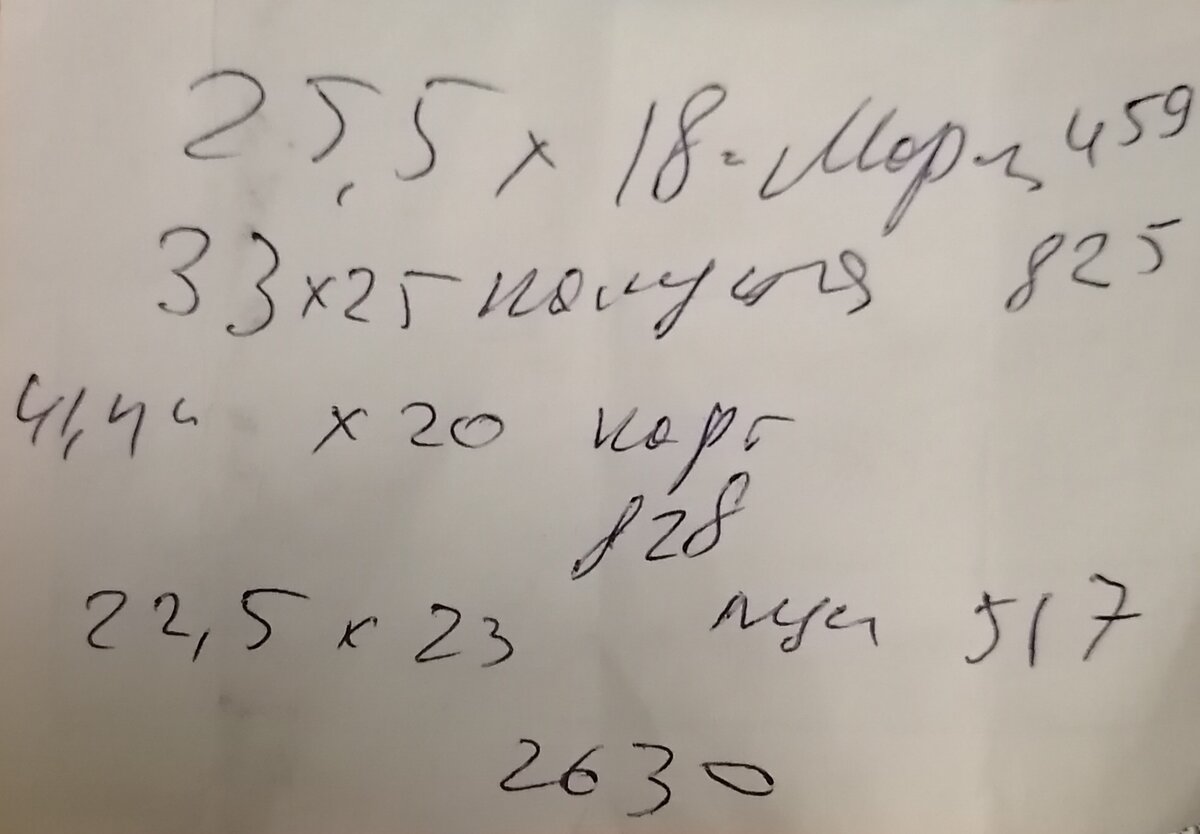 25,5 x 18 = Морк 459
33 x 25 капуста 825
41,4 x 20 карт
828
22,5 x 23 лук 517
2630